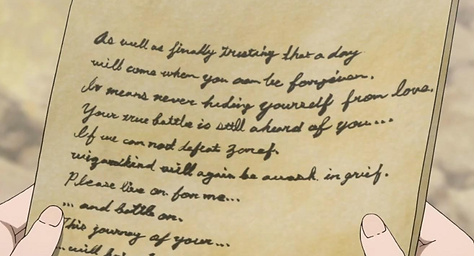 As well as finally trusting that a day
will come when you can be forgiven.
It means never hiding yourself from love.
Your true battle is still ahead of you...
If we can not defeat Zeref,
wizardkind will again be awash in grief.
Please live on for me...
... and battle on.
This journey of your...
... will